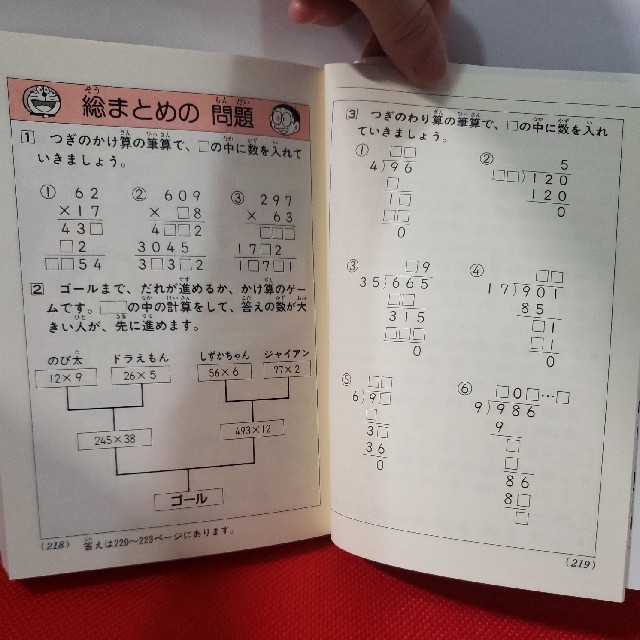 総まとめの 問題
1 つぎのかけ算の筆算で、□の中に数を入れて
いきましょう。
① 62
×17
43□
□2
□□54
② 609
× □8
4□□2
3045
3□3□2
③ 297
× 63
□□□
17□2
1□7□1
2 ゴールまで、だれが進めるか、かけ算のゲー
ムです。□の中の計算をして、答えの数が大
きい人が、先に進めます。
のび太 ドラえもん しずかちゃん ジャイアン
12×9 26×5 56×6 77×2
245×38 493×12
ゴール
(218) 答えは220〜223ページにあります。
3 つぎのわり算の筆算で、□の中に数を入れ
ていきましょう。
①
□□
4)96
□
1□
□□
0
②
5
□□)120
120
0
③
□9
35)665
□□
315
□□□
0
④
□□
17)901
85
□1
□1
0
⑤
□□
6)9□
□
3□
36
0
⑥
□0□…□
9)986
9
□
□
86
8□
□
(219)